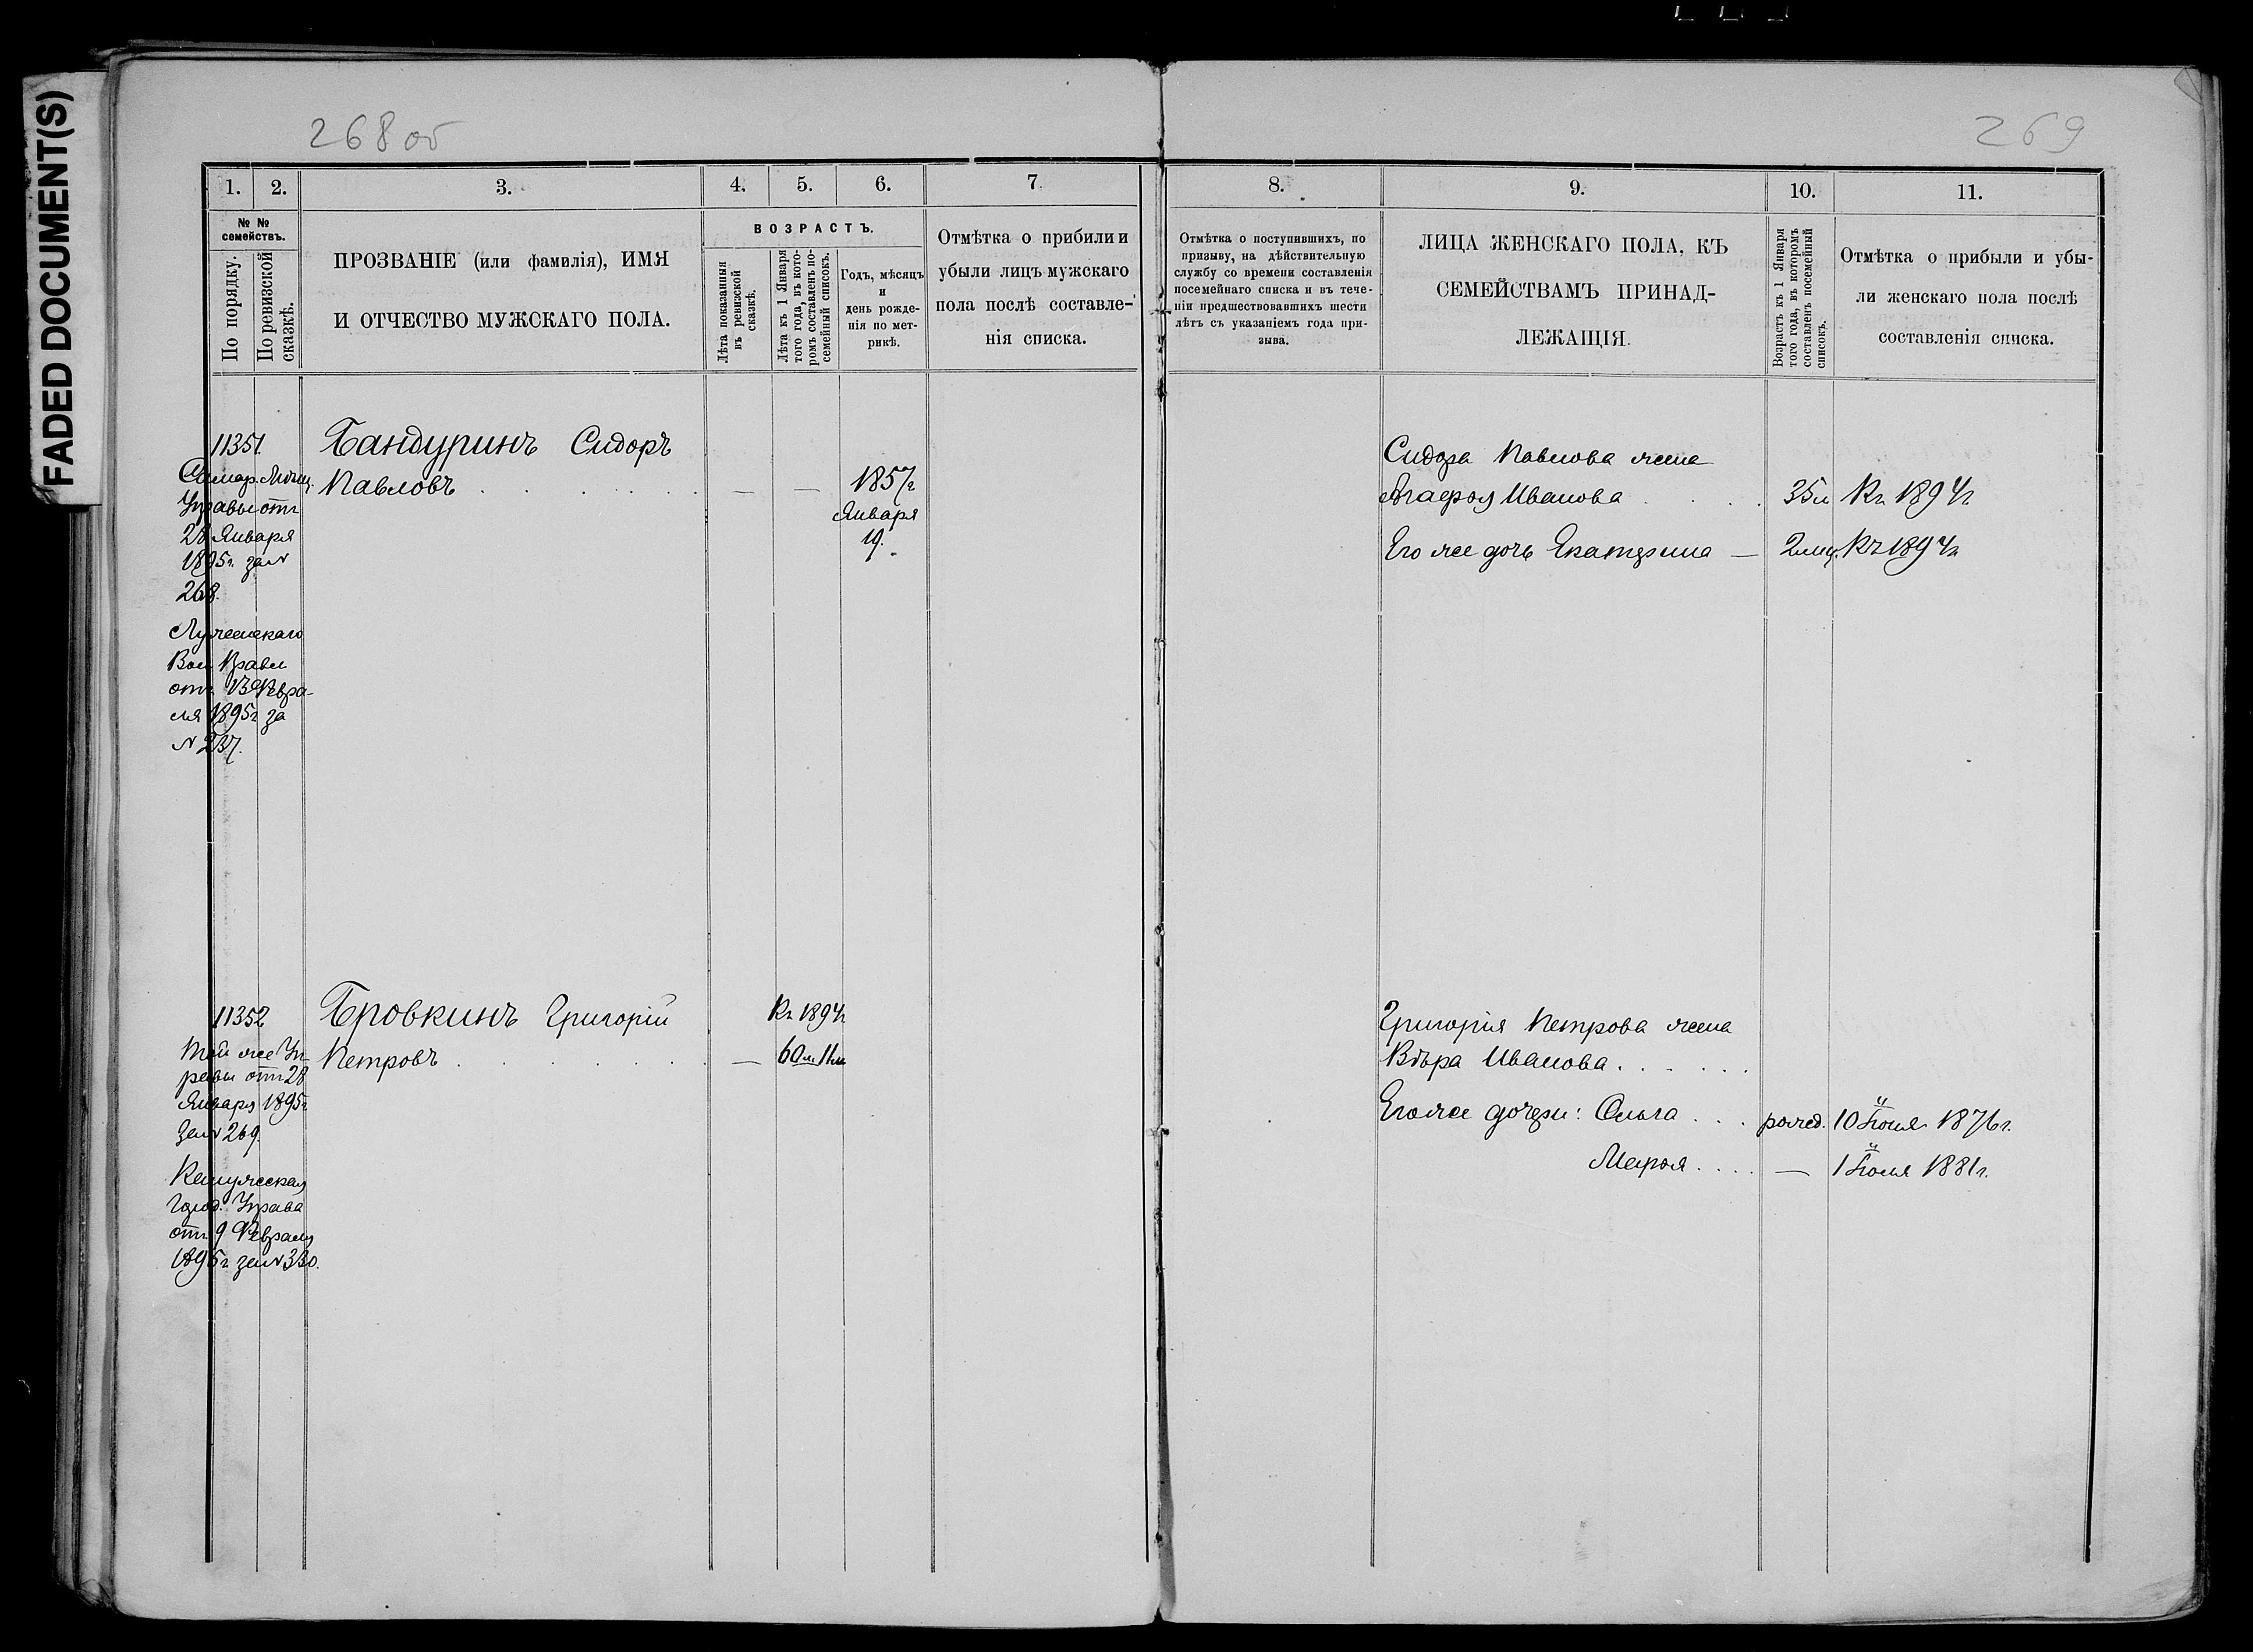 FADED DOCUMENT(S)
268об
269
1. 2. 3. 4. 5. 6. 7. 8. 9. 10. 11.
№ №
семействъ.
По порядку.
По ревизской
сказкѣ.
ПРОЗВАНІЕ (или фамилія), ИМЯ
И ОТЧЕСТВО МУЖСКАГО ПОЛА.
ВОЗРАСТЪ.
Лѣта показанныя
въ ревизской
сказкѣ.
Лѣта къ 1 Января
того года, въ кото-
ромъ составленъ по-
семейный списокъ.
Годъ, мѣсяцъ
и
день рожде-
нія по мет-
рикѣ.
Отмѣтка о прибыли и
убыли лицъ мужскаго
пола послѣ составле-
нія списка.
Отмѣтка о поступившихъ, по
призыву, на дѣйствительную
службу со времени составленія
посемейнаго списка и въ тече-
ніи предшествовавшихъ шести
лѣтъ съ указаніемъ года при-
зыва.
ЛИЦА ЖЕНСКАГО ПОЛА, КЪ
СЕМЕЙСТВАМЪ ПРИНАД-
ЛЕЖАЩІЯ.
Возрастъ къ 1 Января
того года, въ которомъ
составленъ посемейный
списокъ.
Отмѣтка о прибыли и убы-
ли женскаго пола послѣ
составленія списка.
11351.
Самар. Мѣщ.
Управы отъ
28 Января
1895г. за №
268.
Вол. Правл.
отъ 13 Февра-
ля 1895г за
№ 237.
Бандуринъ Сидоръ
Павловъ . . . . . . — —
1857г
Января
19.
Сидора Павлова жена
Агафья Иванова . . . 35л Къ 1894г
Его же дочь Екатерина — 2мц. Къ 1894г
11352
Той же Уп-
равы отъ 28
Января 1895г
за № 269.
Город. Управа
отъ 9 Февраля
1895г за № 330.
Бровкинъ Григорій
Петровъ . . . . . . —
Къ 1894г
60л 11м
Григорія Петрова жена
Вѣра Иванова . . . . .
Его же дочери: Ольга . . . рожд. 10 Іюня 1876г.
Марья . . . . — 1 Іюля 1881г.